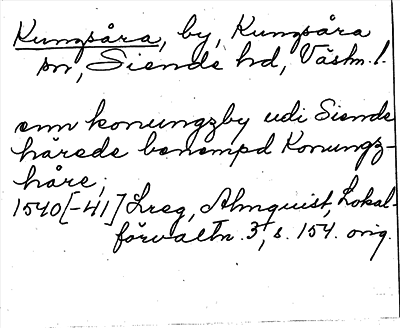 Kungsåra, by, Kungsåra
sn, Siende hd, Västm. l.
enn konungzby udi Siende
härede benempd Konungz-
håre,
1540[-41] Lreg, Almquist, Lokal-
förvaltn. 3, s. 154. orig.